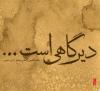 دیرگاهی است ...